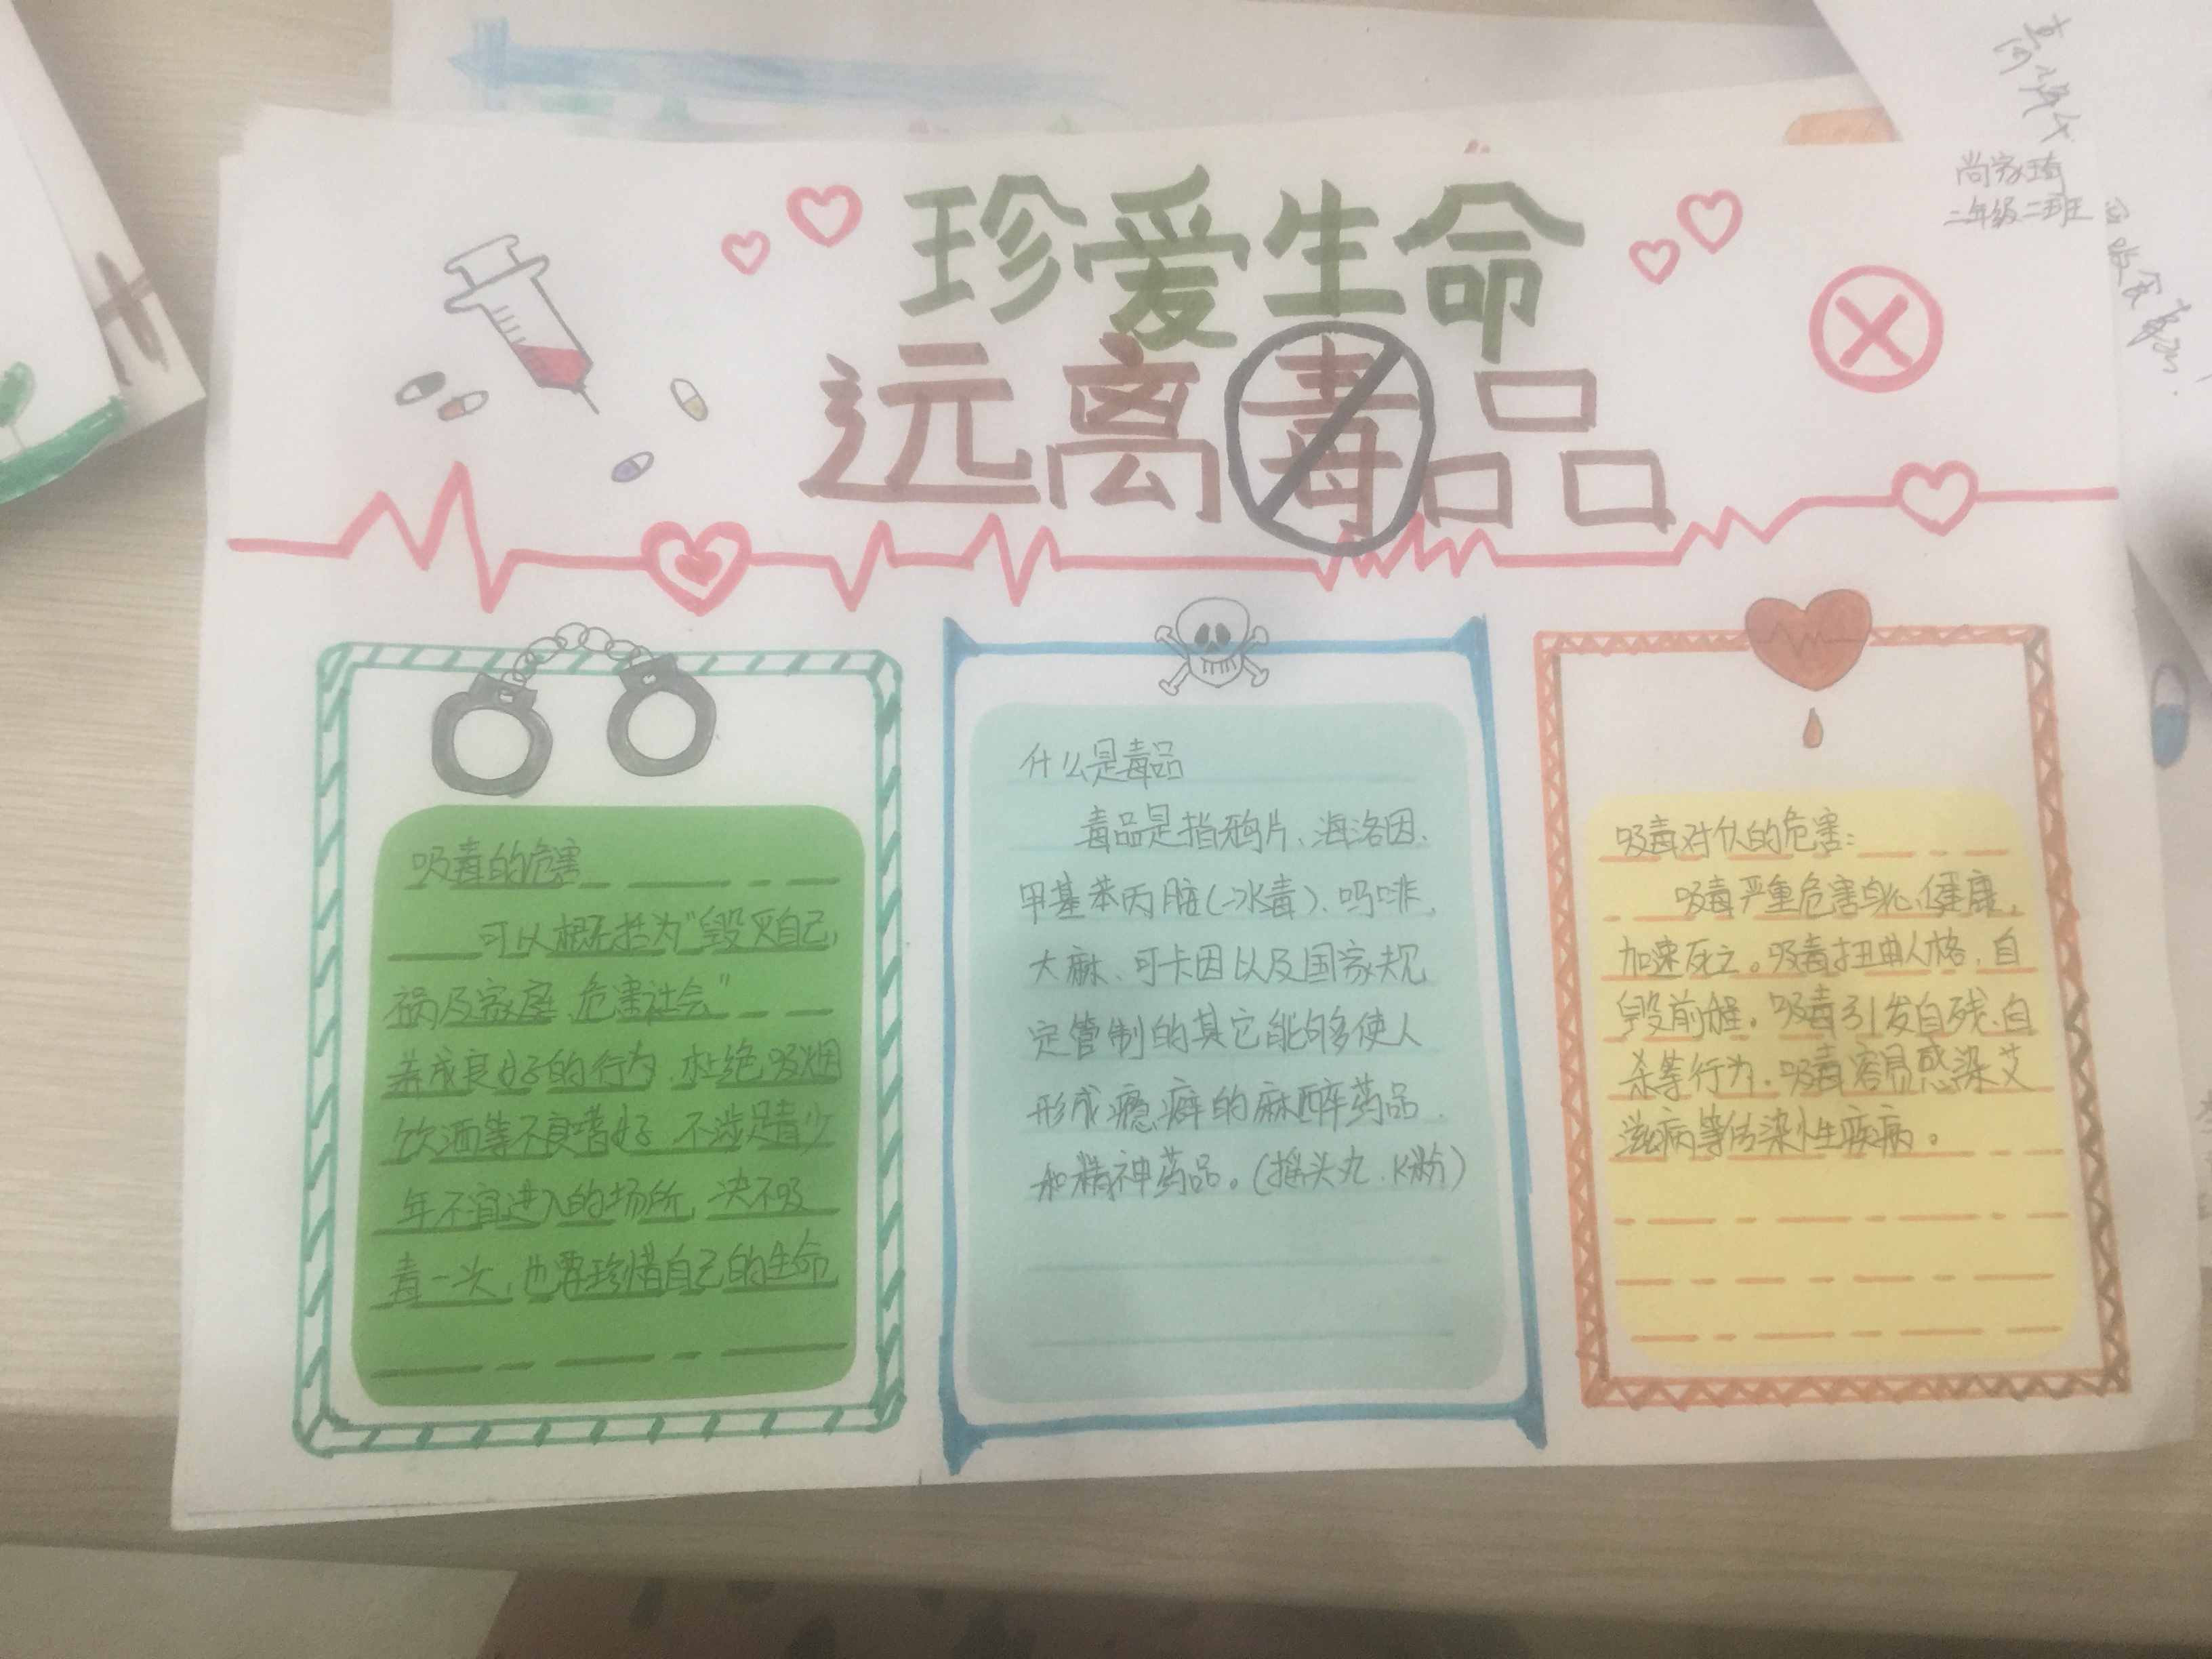 珍爱生命
远离毒品
尚家琦
二年级二班
吸毒的危害
可以概括为“毁灭自己,
祸及家庭 危害社会”
养成良好的行为,杜绝吸烟
饮酒等不良嗜好,不涉足青少
年不宜进入的场所,决不吸
毒一次,也要珍惜自己的生命
什么是毒品
毒品是指鸦片、海洛因、
甲基苯丙胺(冰毒)、吗啡、
大麻、可卡因以及国家规
定管制的其它能够使人
形成瘾癖的麻醉药品
和精神药品。(摇头丸、K粉)
吸毒对 的危害:
吸毒严重危害身心健康,
加速死亡。吸毒扭曲人格,自
毁前程。吸毒引发自残、自
杀等行为,吸毒容易感染艾
滋病等传染性疾病。